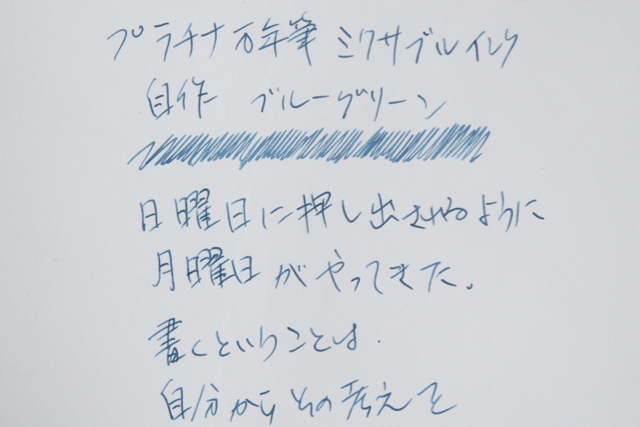 プラチナ万年筆 ミクサブルインク
自作 ブルーグリーン
日曜日に押し出されるように
月曜日がやってきた。
書くということは
自分からその考えを